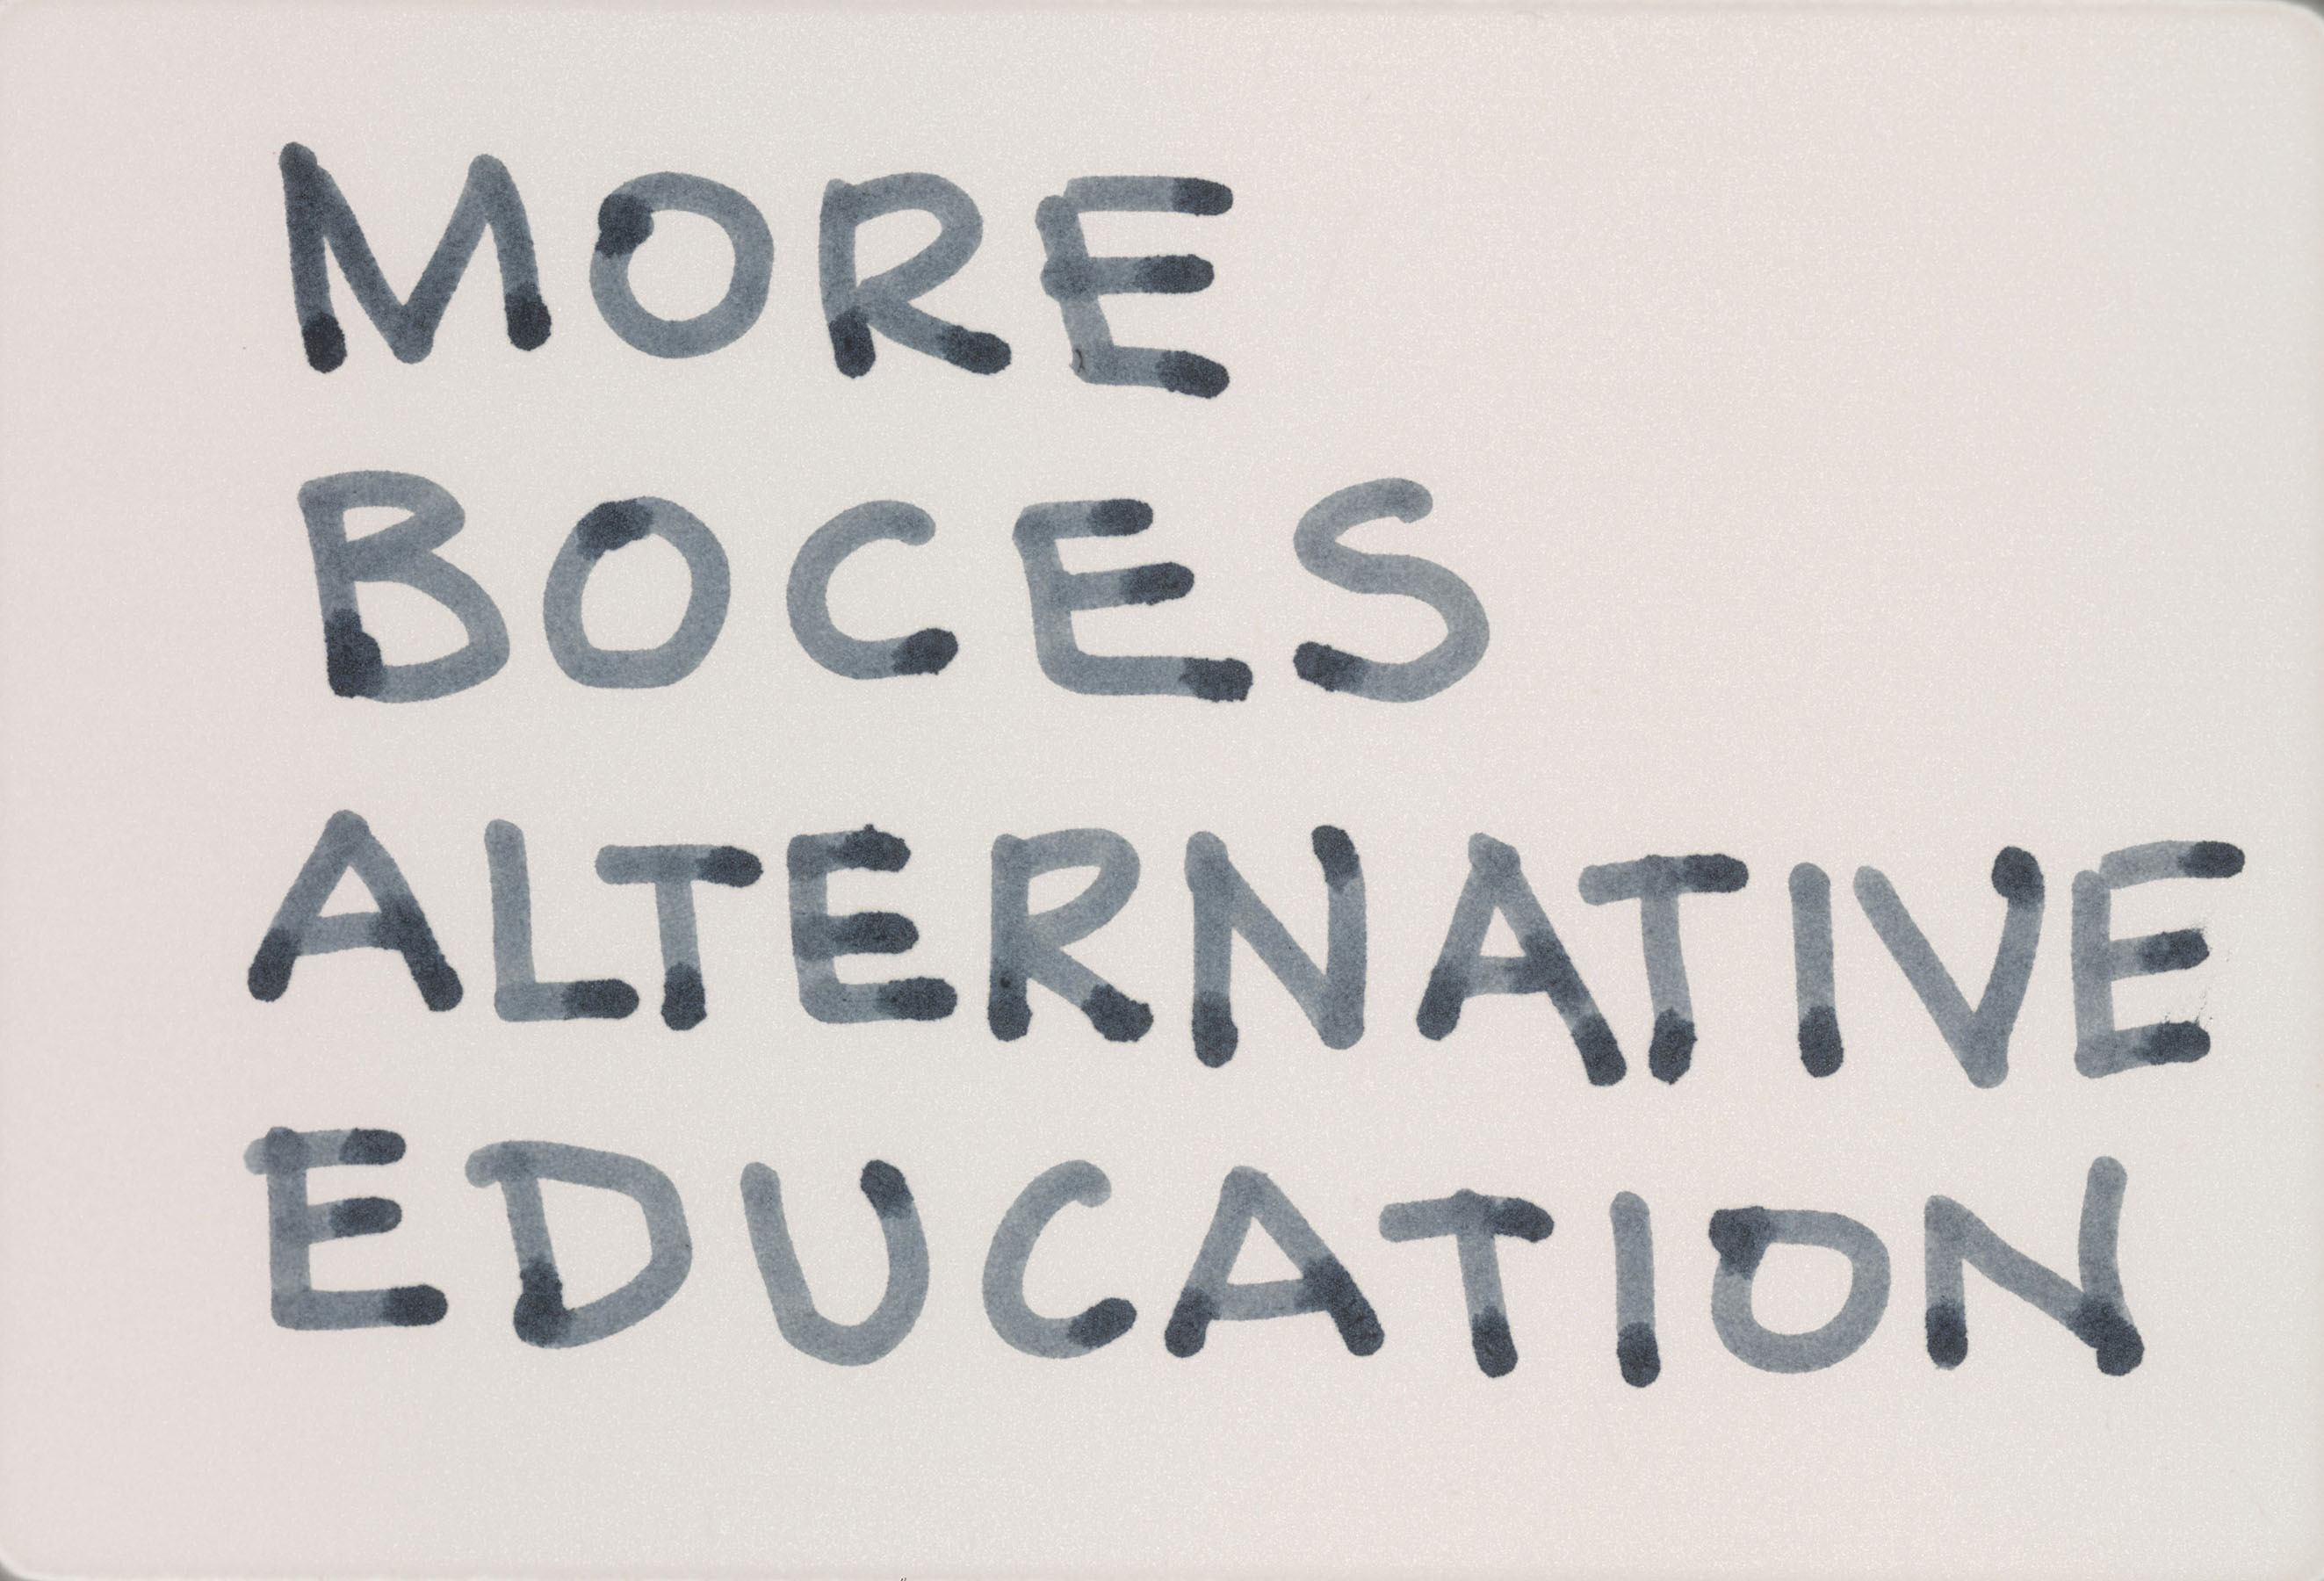 MORE
BOCES
ALTERNATIVE
EDUCATION